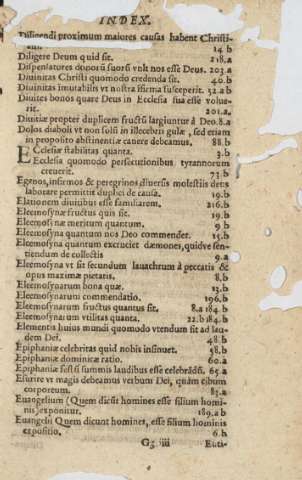 INDEX.
Diligendi proximum maiores causas habent Christi-
ani. 14 b
Diligere Deum quid sit. 218.a
Dispensatores donorū suorū vult nos esse Deus. 203.a
Diuinitas Christi quomodo credenda sit. 40.b
Diuinitas imutabilis vt nostra isirma susceperit. 32.a b
Diuites bonos quare Deus in Ecclesia sua esse volue-
rit. 201.a
Diuitiæ propter duplicem fructū largiuntur à Deo. 8.a
Dolos diaboli vt non solū in illecebris gulæ, sed etiam
in proposito abstinentiæ cauere debeamus. 88.b
Ecclesiæ stabilitas quanta. 3.b
Ecclesia quomodo persecutionibus tyrannorum
creuerit. 73.b
Egenos, infirmos & peregrinos diuersis molestiis detes
laborare permittit duplici de causa. 19.b
Elationem diuitibus esse familiarem. 216.b
Eleemosynæ fructus quis sit. 19.b
Eleemosynæ meritum quantum. 9.b
Eleemosyna quantum nos Deo commendet. 15.b
Eleemosyna quantum excruciet dæmones, quidve sen-
tiendum de collectis 9.a
Eleemosyna vt sit secundum lauachrum à peccatis &
opus maximæ pietatis. 8.b
Eleemosynarum bona quæ. 13.b
Eleemosynarum commendatio. 196.b
Eleemosynarum fructus quantus sit. 8.a 184.b
Eleemosynarum vtilitas quanta. 22.b 184.b
Elementis huius mundi quomodo vtendum sit ad lau-
dem Dei. 48.b
Epiphaniæ celebritas quid nobis insinuet. 58.b
Epiphaniæ dominicæ ratio. 60.a
Epiphaniæ festū summis laudibus esse celebrādū. 65.a
Esurire vt magis debeamus verbum Dei, quàm cibum
corporeum. 83.a
Euangelium (Quem dicūt homines esse filium homi-
nis) exponitur. 189.a b
Euangelii Quem dicunt homines, esse filium hominis
expositio. 6.b
Gg iiii Euti-